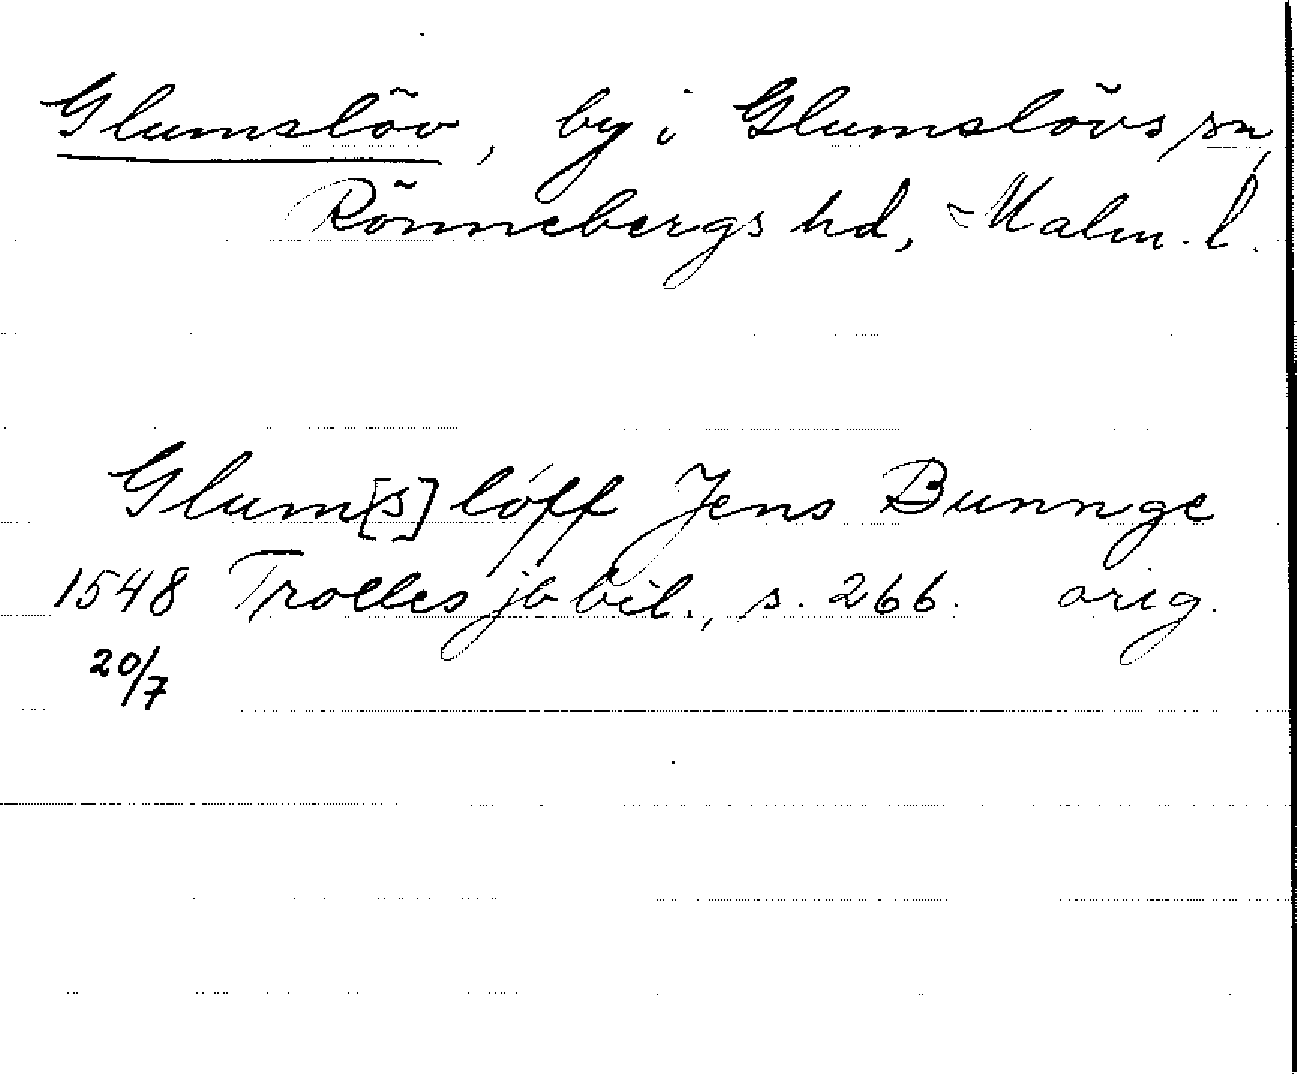 Glumslöv, by i Glumslövs sn,
Rönnebergs hd, Malm. l.
Glum[s]löff Jens Bunnge
1548 Trolles jb bil., s. 266. orig.
20/7